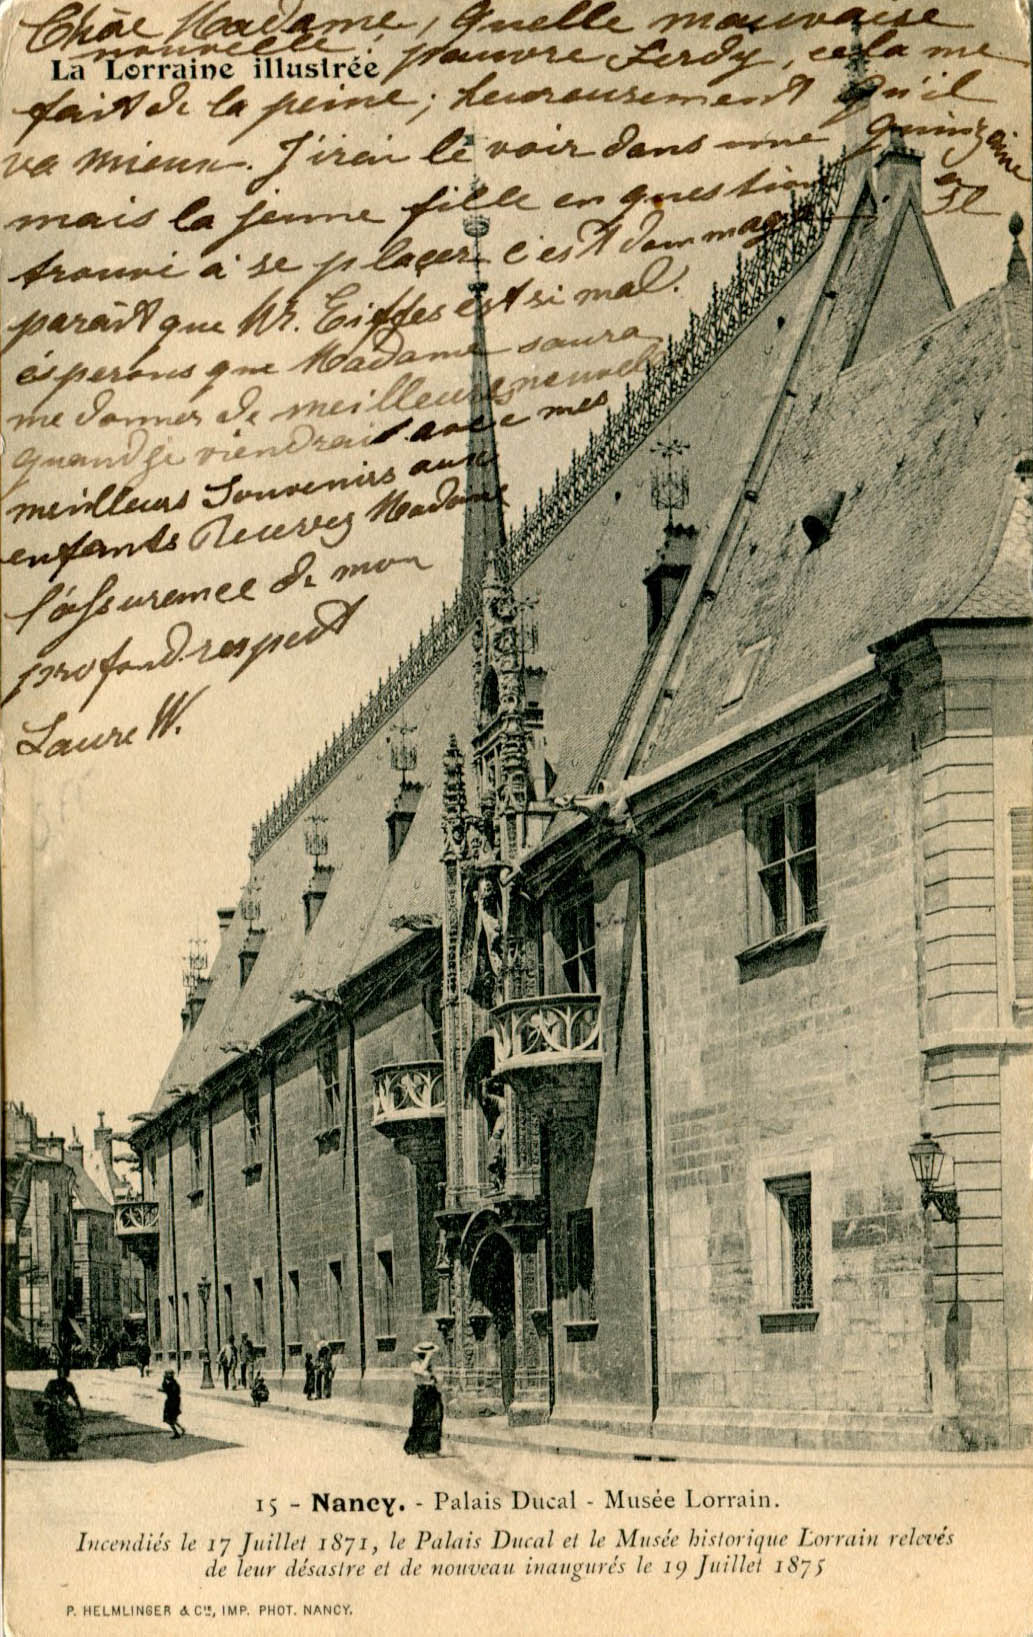 Chère Madame, Quelle mauvaise
nouvelle! pauvre Ferdy, cela me
La Lorraine illustrée
fait de la peine; heureusement qu'il
va mieux. J'irai le voir dans une quinzaine
mais la jeune fille en question a
trouvé à se placer c'est dommage Il
parait que Mr. est si mal.
ésperons que Madame saura
me donner de meilleures nouvelles
quand je viendrai avec mes
meilleurs Souvenirs aux
enfants Recevez Madame
l'assurance de mon
profond respect
Laure W.
15 - Nancy. - Palais Ducal - Musée Lorrain.
Incendiés le 17 Juillet 1871, le Palais Ducal et le Musée historique Lorrain relevés
de leur désastre et de nouveau inaugurés le 19 Juillet 1875
P. HELMLINGER & Cie, IMP. PHOT. NANCY.